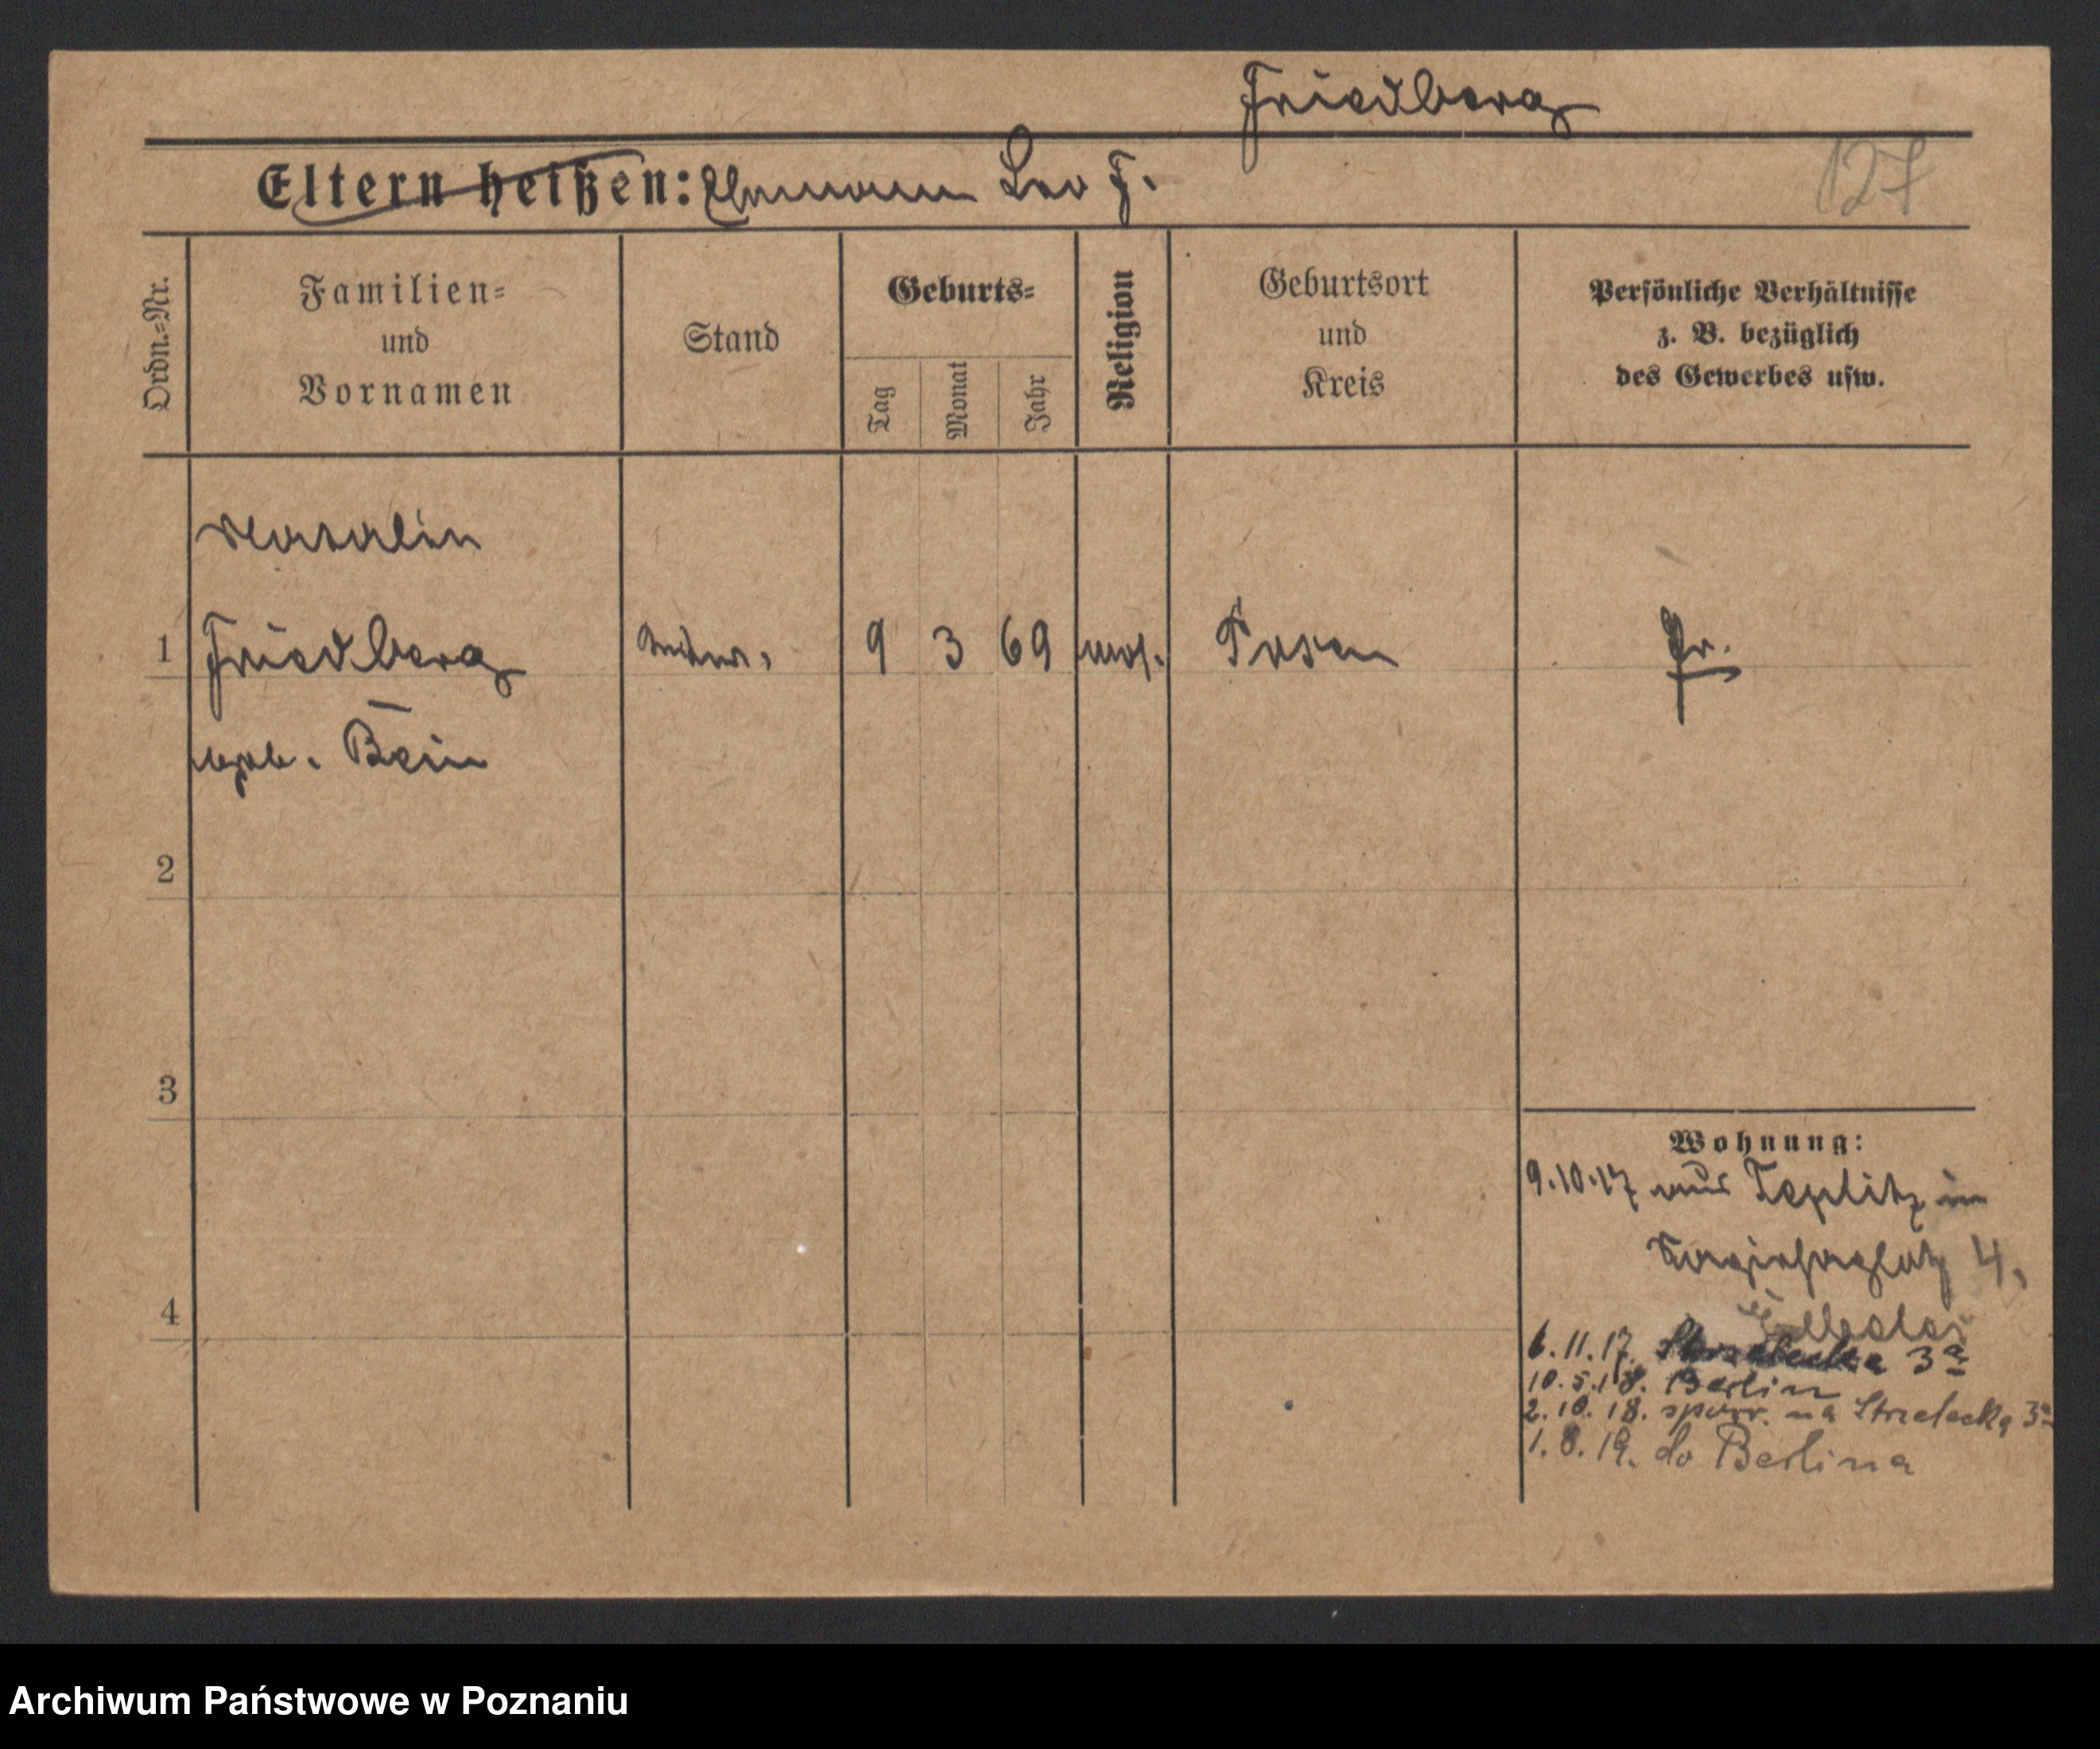 Friedberg
Eltern heißen: Ehemann Leo F.
127
Ordn.=Nr.
Familien=
und
Vornamen
Stand
Geburts=
Tag
Monat
Jahr
Religion
Geburtsort
und
Kreis
Persönliche Verhältnisse
z. B. bezüglich
des Gewerbes usw.
1
Friedberg
9
3
69
mos.
Posen
Pr.
geb. Bein
2
3
4
Wohnung:
9.10.17 aus Teplitz in
4,
6.11.17. 3a
10.5.18. Berlin
2.10.18. spowr. na Strzelecką 3a
1.8.19. do Berlina
Archiwum Państwowe w Poznaniu